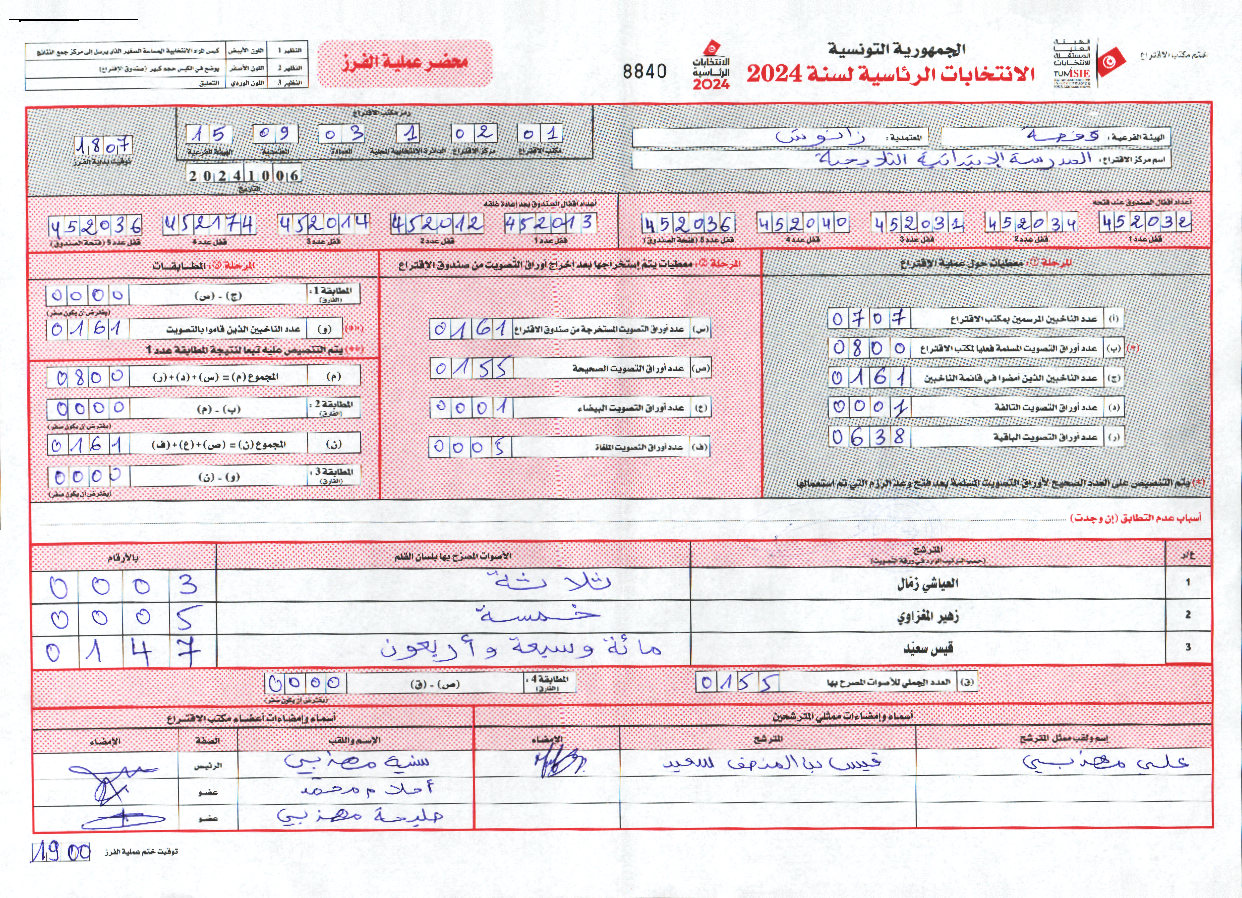 ختم مكتب الاقتراع
الهيئة العليا المستقلة للانتخابات
TUNISIE
الجمهورية التونسية
الانتخابات الرئاسية لسنة 2024
الانتخابات الرئاسية 2024
8840
محضر عملية الفرز
النظير 1 اللون الأبيض كيس المواد الانتخابية الحساسة الصغير الذي يرسل إلى مركز جمع النتائج
النظير 2 اللون الأصفر يوضع في الكيس حجم كبير (صندوق الاقتراع)
النظير 3 اللون الوردي التعليق
الهيئة الفرعية: قفصة المعتمدية: زانوش
اسم مركز الاقتراع: المدرسة الإبتدائية
رمز مكتب الاقتراع
01 02 1 03 09 15
مكتب الاقتراع مركز الاقتراع الدائرة الانتخابية المحلية العمادة المعتمدية الهيئة الفرعية
20241006
التاريخ
1807
توقيت بداية الفرز
أعداد أقفال الصندوق عند فتحه
452032 452034 452031 452040 452036
قفل عدد 1 قفل عدد 2 قفل عدد 3 قفل عدد 4 قفل عدد 5 (فتحة الصندوق)
أعداد أقفال الصندوق بعد إعادة غلقه
452013 452012 452014 452174 452036
قفل عدد 1 قفل عدد 2 قفل عدد 3 قفل عدد 4 قفل عدد 5 (فتحة الصندوق)
المرحلة ①: معطيات حول عملية الاقتراع
(أ) عدد الناخبين المرسمين بمكتب الاقتراع 0707
(*) (ب) عدد أوراق التصويت المسلمة فعليا لمكتب الاقتراع 0800
(ج) عدد الناخبين الذين أمضوا في قائمة الناخبين 0161
(د) عدد أوراق التصويت التالفة 0001
(ر) عدد أوراق التصويت الباقية 0638
(*) يتم التنصيص على العدد الصحيح لأوراق التصويت المسلمة بعد فتح وعد الرزم التي تم استعمالها
المرحلة ②: معطيات يتم إستخراجها بعد اخراج أوراق التصويت من صندوق الاقتراع
(س) عدد أوراق التصويت المستخرجة من صندوق الاقتراع 0161
(ص) عدد أوراق التصويت الصحيحة 0155
(ع) عدد أوراق التصويت البيضاء 0001
(ف) عدد أوراق التصويت الملغاة 0005
المرحلة ③: المطابقات
المطابقة 1: (الفارق) (ج) - (س) 0000
(يفترض أن يكون صفر)
(**) (و) عدد الناخبين الذين قاموا بالتصويت 0161
(**) يتم التنصيص عليه تبعا لنتيجة المطابقة عدد 1
(م) المجموع (م) = (س)+(د)+(ر) 0800
المطابقة 2: (الفارق) (ب) - (م) 0000
(يفترض أن يكون صفر)
(ن) المجموع (ن) = (ص)+(ع)+(ف) 0161
المطابقة 3: (الفارق) (و) - (ن) 0000
(يفترض أن يكون صفر)
أسباب عدم التطابق (إن وجدت)
ع/ر المترشح الأصوات المصرح بها بلسان القلم بالأرقام
(حسب الترتيب الوارد في ورقة التصويت)
1 العياشي زمّال ثلاثة 0003
2 زهير المغزاوي خمسة 0005
3 قيس سعيّد مائة وسبعة وأربعون 0147
(ق) العدد الجملي للأصوات المصرح بها 0155
المطابقة 4: (الفارق) (ص) - (ق) 0000
(يفترض أن يكون صفر)
أسماء وإمضاءات ممثلي المترشحين
إسم ولقب ممثل المترشح المترشح الإمضاء
علي مهذبي قيس بن المنصف سعيد
أسماء وإمضاءات أعضاء مكتب الاقتراع
الإسم واللقب الصفة الإمضاء
سنية مهذبي الرئيس
أحلام محمد عضو
مهذبي عضو
توقيت ختم عملية الفرز 1900